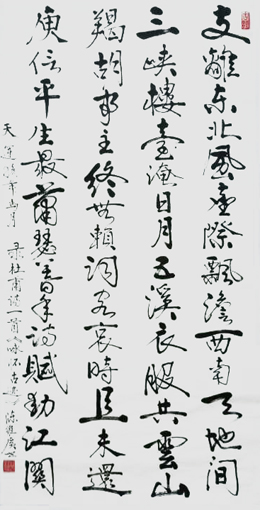 支離东北風塵際飄泊西南天地間
三峡樓臺淹日月五溪衣服共雲山
羯胡事主終無賴詞客哀時且未還
庾信平生最蕭瑟暮年詩賦動江関
录杜甫詩一首咏怀古迹